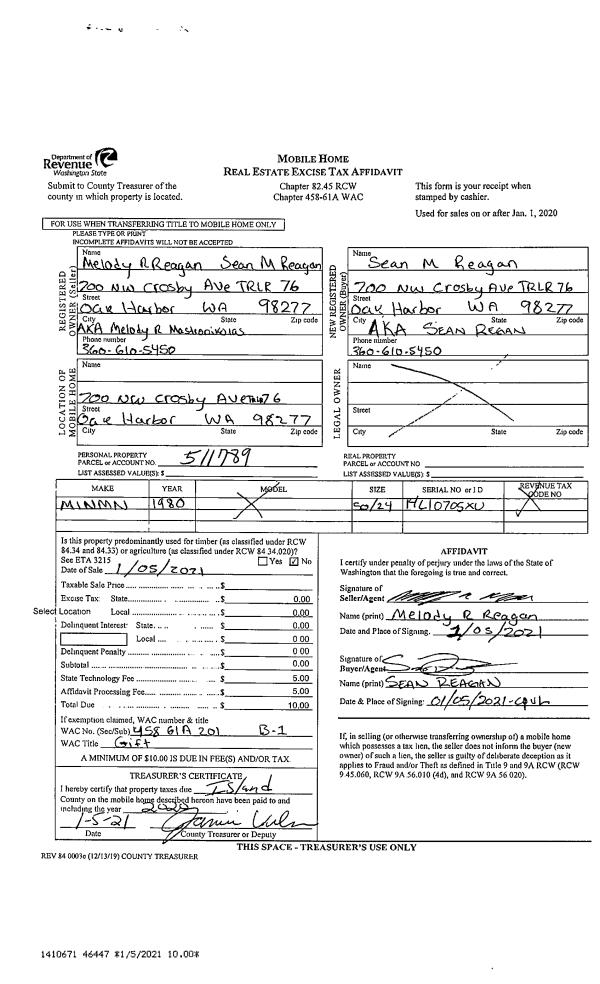 Department of
Revenue
Washington State
Submit to County Treasurer of the
county in which property is located.
MOBILE HOME
REAL ESTATE EXCISE TAX AFFIDAVIT
Chapter 82.45 RCW
Chapter 458-61A WAC
This form is your receipt when
stamped by cashier.
Used for sales on or after Jan. 1, 2020
FOR USE WHEN TRANSFERRING TITLE TO MOBILE HOME ONLY
PLEASE TYPE OR PRINT
INCOMPLETE AFFIDAVITS WILL NOT BE ACCEPTED
REGISTERED
OWNER (Seller)
Name
Melody R Reagan Sean M Reagan
700 NW Crosby Ave TRLR 76
Street
Oak Harbor WA 98277
City State Zip code
AKA Melody R
Phone number
360-610-5450
NEW REGISTERED
OWNER (Buyer)
Name
Sean M Reagan
700 NW Crosby Ave TRLR 76
Street
Oak Harbor WA 98277
City State Zip code
AKA SEAN REGAN
Phone number
360-610-5450
LOCATION OF
MOBILE HOME
Name
700 NW Crosby Ave 76
Street
Oak Harbor WA 98277
City State Zip code
LEGAL OWNER
Name
Street
City State Zip code
PERSONAL PROPERTY
PARCEL or ACCOUNT NO. 511789
LIST ASSESSED VALUE(S): $
REAL PROPERTY
PARCEL or ACCOUNT NO.
LIST ASSESSED VALUE(S): $
MAKE YEAR MODEL SIZE SERIAL NO or I D REVENUE TAX CODE NO
MINMN 1980 50/24 HL10705XU
Is this property predominantly used for timber (as classified under RCW
84.34 and 84.33) or agriculture (as classified under RCW 84 34.020)?
See ETA 3215 Yes No
Date of Sale 1/05/2021
Taxable Sale Price $
Excise Tax: State $ 0.00
Select Location Local $ 0.00
Delinquent Interest: State $ 0.00
Local $ 0 00
Delinquent Penalty $ 0 00
Subtotal $ 0.00
State Technology Fee $ 5.00
Affidavit Processing Fee $ 5.00
Total Due $ 10.00
If exemption claimed, WAC number & title
WAC No. (Sec/Sub) 458 61A 201 B-1
WAC Title Gift
A MINIMUM OF $10.00 IS DUE IN FEE(S) AND/OR TAX.
TREASURER'S CERTIFICATE
I hereby certify that property taxes due Island
County on the mobile home described hereon have been paid to and
including the year 2020
1-5-21
Date County Treasurer or Deputy
AFFIDAVIT
I certify under penalty of perjury under the laws of the State of
Washington that the foregoing is true and correct.
Signature of
Seller/Agent
Name (print) Melody R Reagan
Date and Place of Signing. 1/05/2021
Signature of
Buyer/Agent
Name (print) SEAN REAGAN
Date & Place of Signing: 01/05/2021
If, in selling (or otherwise transferring ownership of) a mobile home
which possesses a tax lien, the seller does not inform the buyer (new
owner) of such a lien, the seller is guilty of deliberate deception as it
applies to Fraud and/or Theft as defined in Title 9 and 9A RCW (RCW
9 45.060, RCW 9A 56.010 (4d), and RCW 9A 56 020).
THIS SPACE - TREASURER'S USE ONLY
REV 84 0003e (12/13/19) COUNTY TREASURER
1410671 46447 *1/5/2021 10.00*